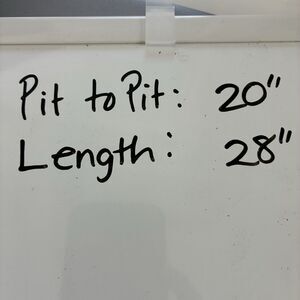 Pit to Pit: 20"
Length: 28"